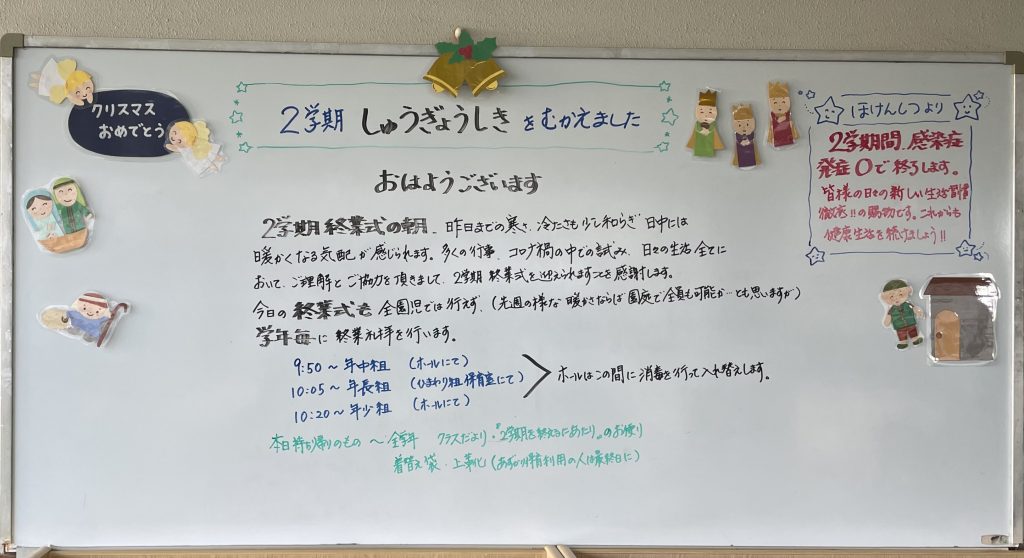 クリスマス
おめでとう
2学期 しゅうぎょうしき をむかえました
ほけんしつより
2学期間、感染症
発症0で終ろします。
皆様の日々の新しい生活習慣
徹底!!の賜物です。これからも
健康生活を続けましょう!!
おはようございます
2学期終業式の朝、昨日までの寒さ、冷たさも少し和らぎ 日中には
暖かくなる気配が感じられます。多くの行事、コロナ禍の中での試み、日々の生活全てに
おいて、ご理解とご協力を頂きまして、2学期 終業式を迎えられますことを感謝します。
今日の 終業式も 全園児では行えず、(先週の様な 暖かさならば 園庭で全員も可能か…とも思いますが)
学年毎に 終業礼拝を行います。
9:50〜年中組 (ホールにて)
10:05〜年長組 (ひまわり組保育室にて)
10:20〜年少組 (ホールにて)
ホールはこの間に消毒を行って入れ替えします。
本日持ち帰りのもの 〜 全学年 クラスだより・『2学期を終えるにあたり』のお便り
着替え袋・上靴 (あずかり保育利用の人は最終日に)